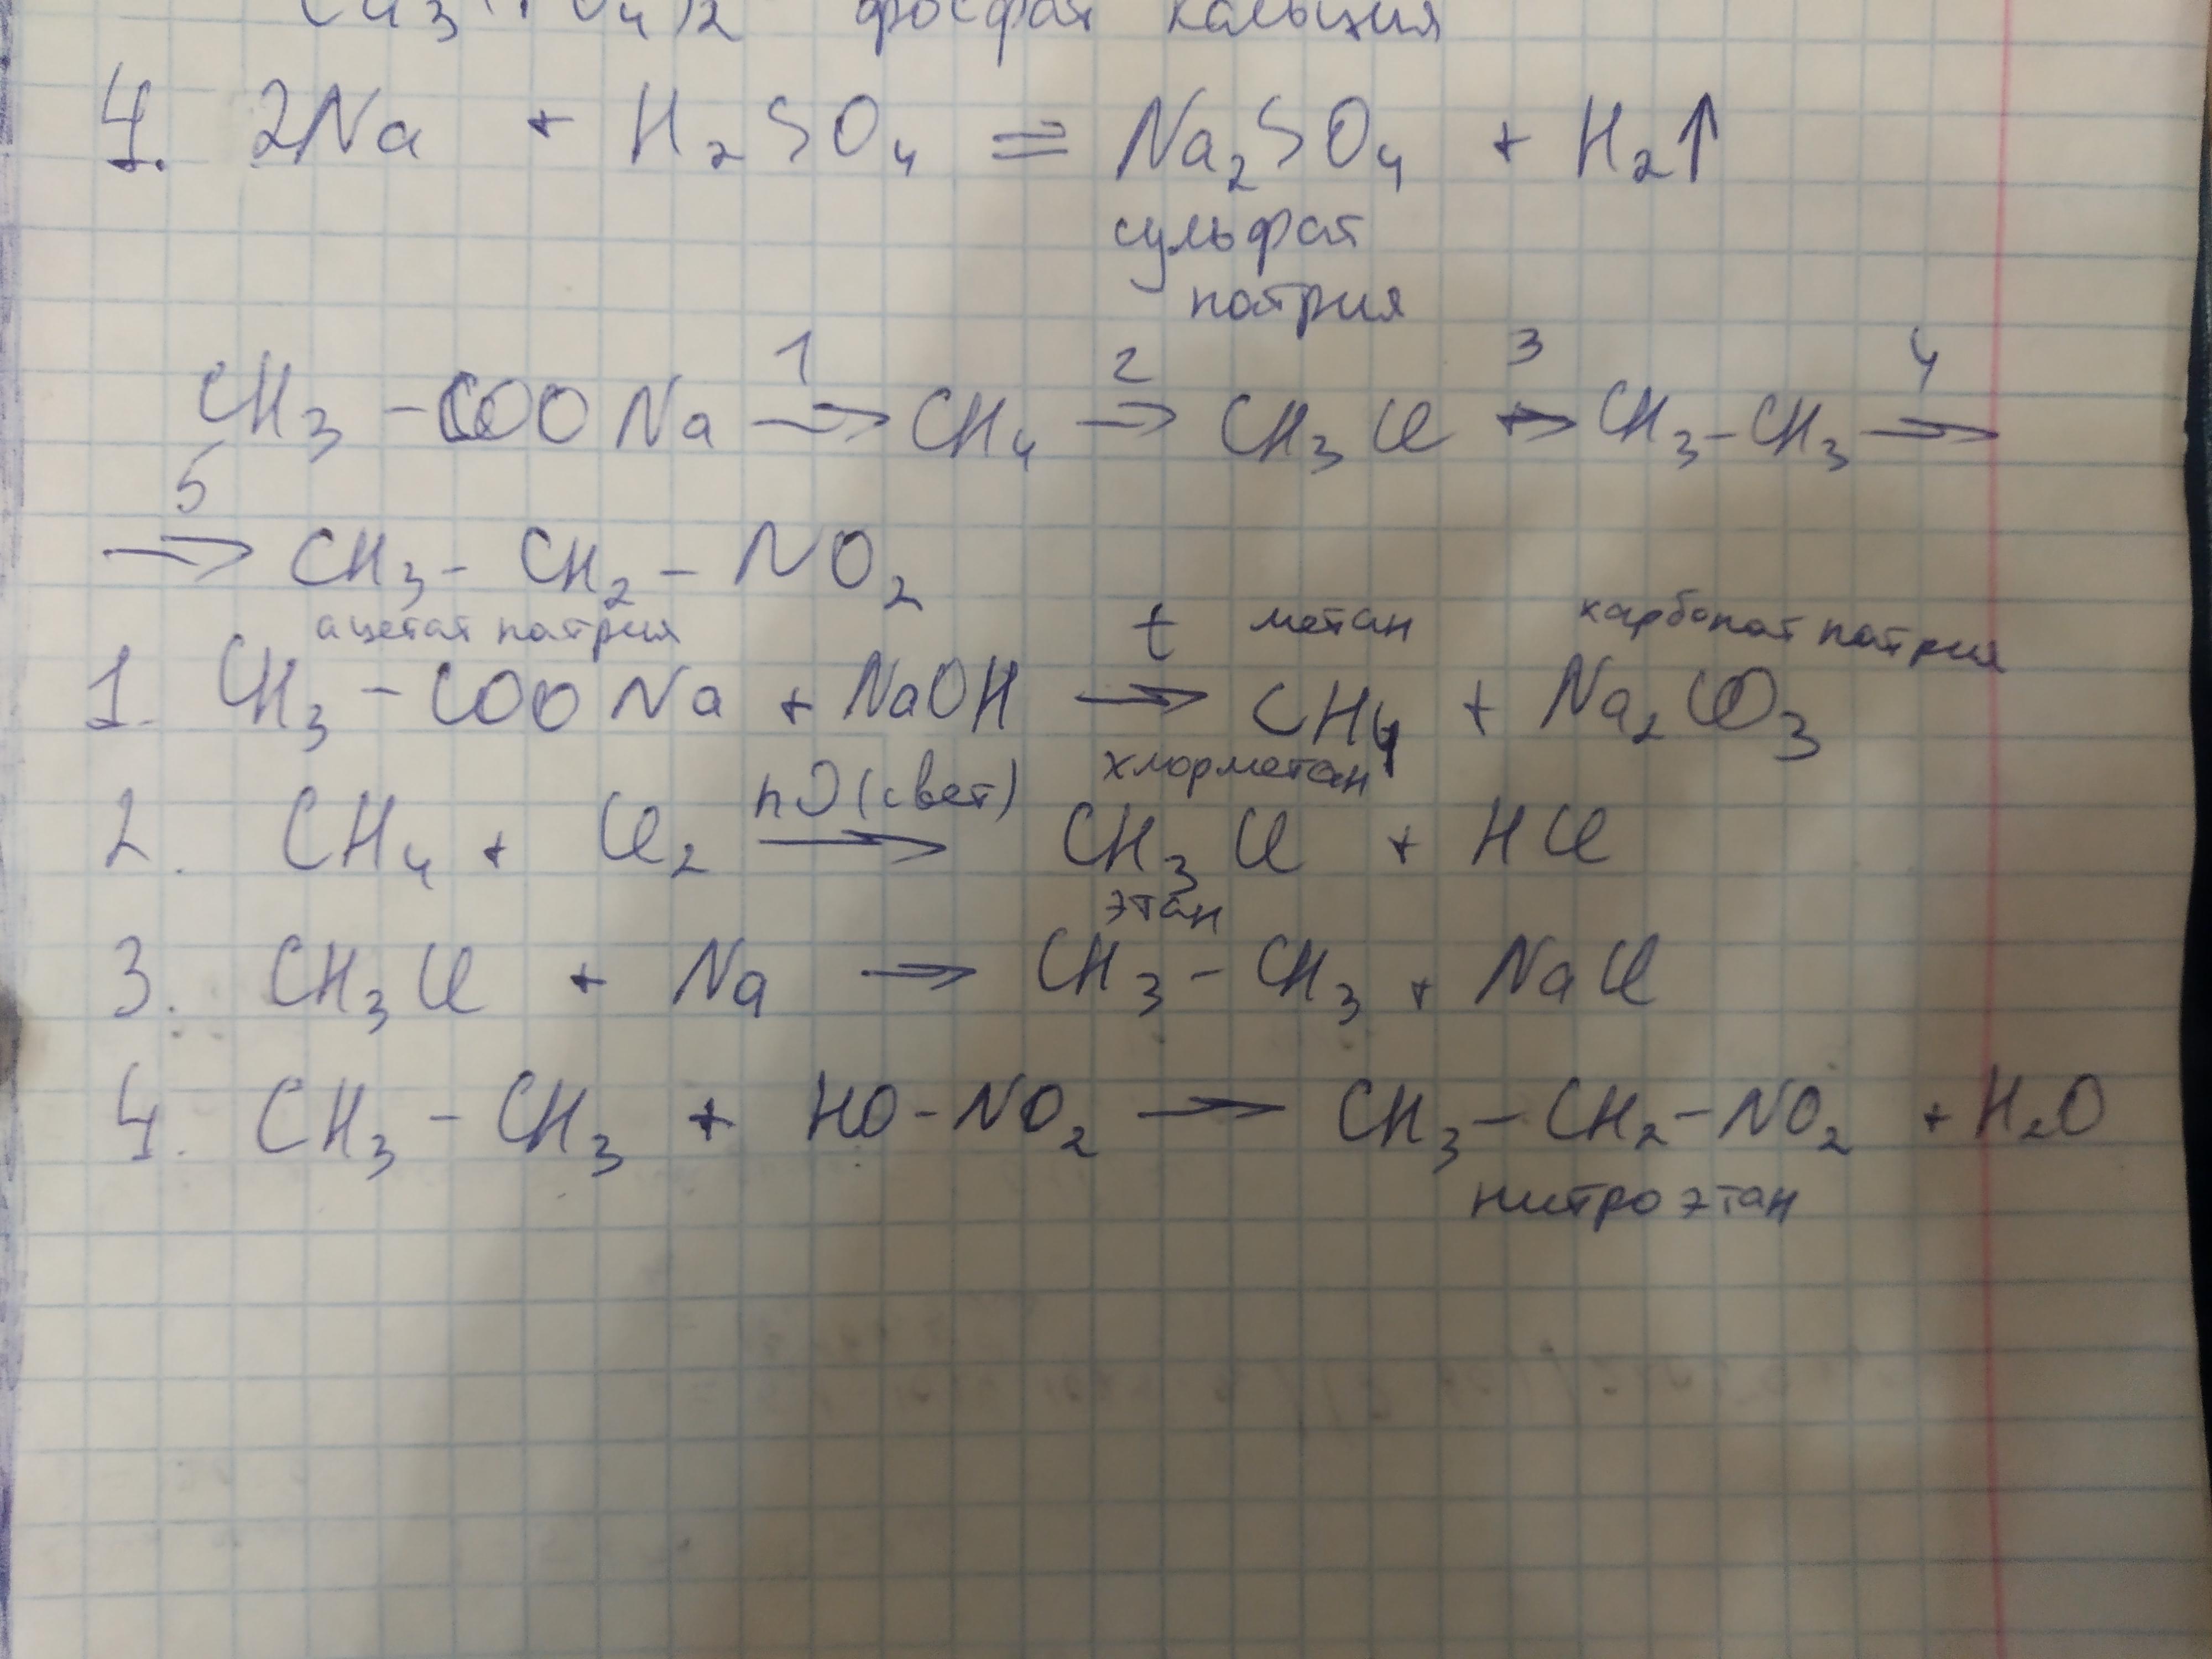 Ca₃(PO₄)₂ фосфат кальция
4. 2Na + H₂SO₄ = Na₂SO₄ + H₂↑
сульфат
натрия
1 2 3 4
CH₃ - COONa → CH₄ → CH₃Cl → CH₃ - CH₃ →
5
→ CH₃ - CH₂ - NO₂
ацетат натрия t метан карбонат натрия
1. CH₃ - COONa + NaOH → CH₄ + Na₂CO₃
hν (свет) хлорметан
2. CH₄ + Cl₂ → CH₃Cl + HCl
этан
3. CH₃Cl + Na → CH₃ - CH₃ + NaCl
4. CH₃ - CH₃ + HO - NO₂ → CH₃ - CH₂ - NO₂ + H₂O
нитроэтан